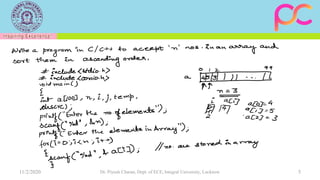 INTEGRAL UNIVERSITY
Inspiring Excellence
Write a program in C/C++ to accept 'n' nos. in an array and
sort them in ascending order.
# include <stdio.h>
# include <conio.h>
void main()
{
int a[100], n, i, j, temp,
clrscr();
printf("Enter the no of elements");
scanf("%d", &n);
printf("Enter the elements in Array");
for(i=0; i<n; i++)
{
scanf("%d", & a[i]); // nos are stored in array
}
a
0 1 2
99
n = 3
i a[i]
a[0]=4
a[1]=5
a[2]=3
11/2/2020
Dr. Piyush Charan, Dept. of ECE, Integral University, Lucknow
5